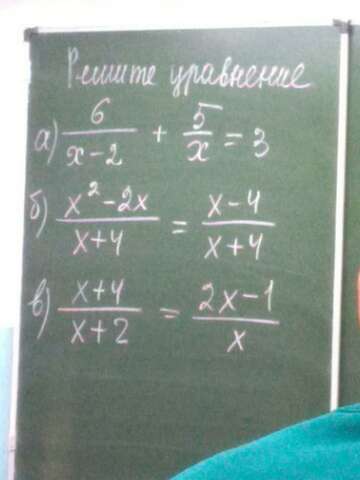 Решите уравнение
а) 6/(x-2) + 5/x = 3
б) (x²-2x)/(x+4) = (x-4)/(x+4)
в) (x+4)/(x+2) = (2x-1)/x